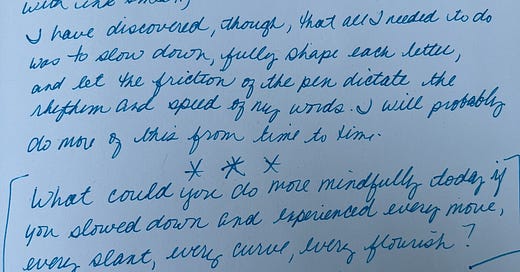 with ink
I have discovered, though, that all I needed to do
was to slow down, fully shape each letter,
and let the friction of the pen dictate the
rhythm and speed of my words. I will probably
do more of this from time to time.
* * *
What could you do more mindfully today if
you slowed down and experienced every move,
every slant, every curve, every flourish?